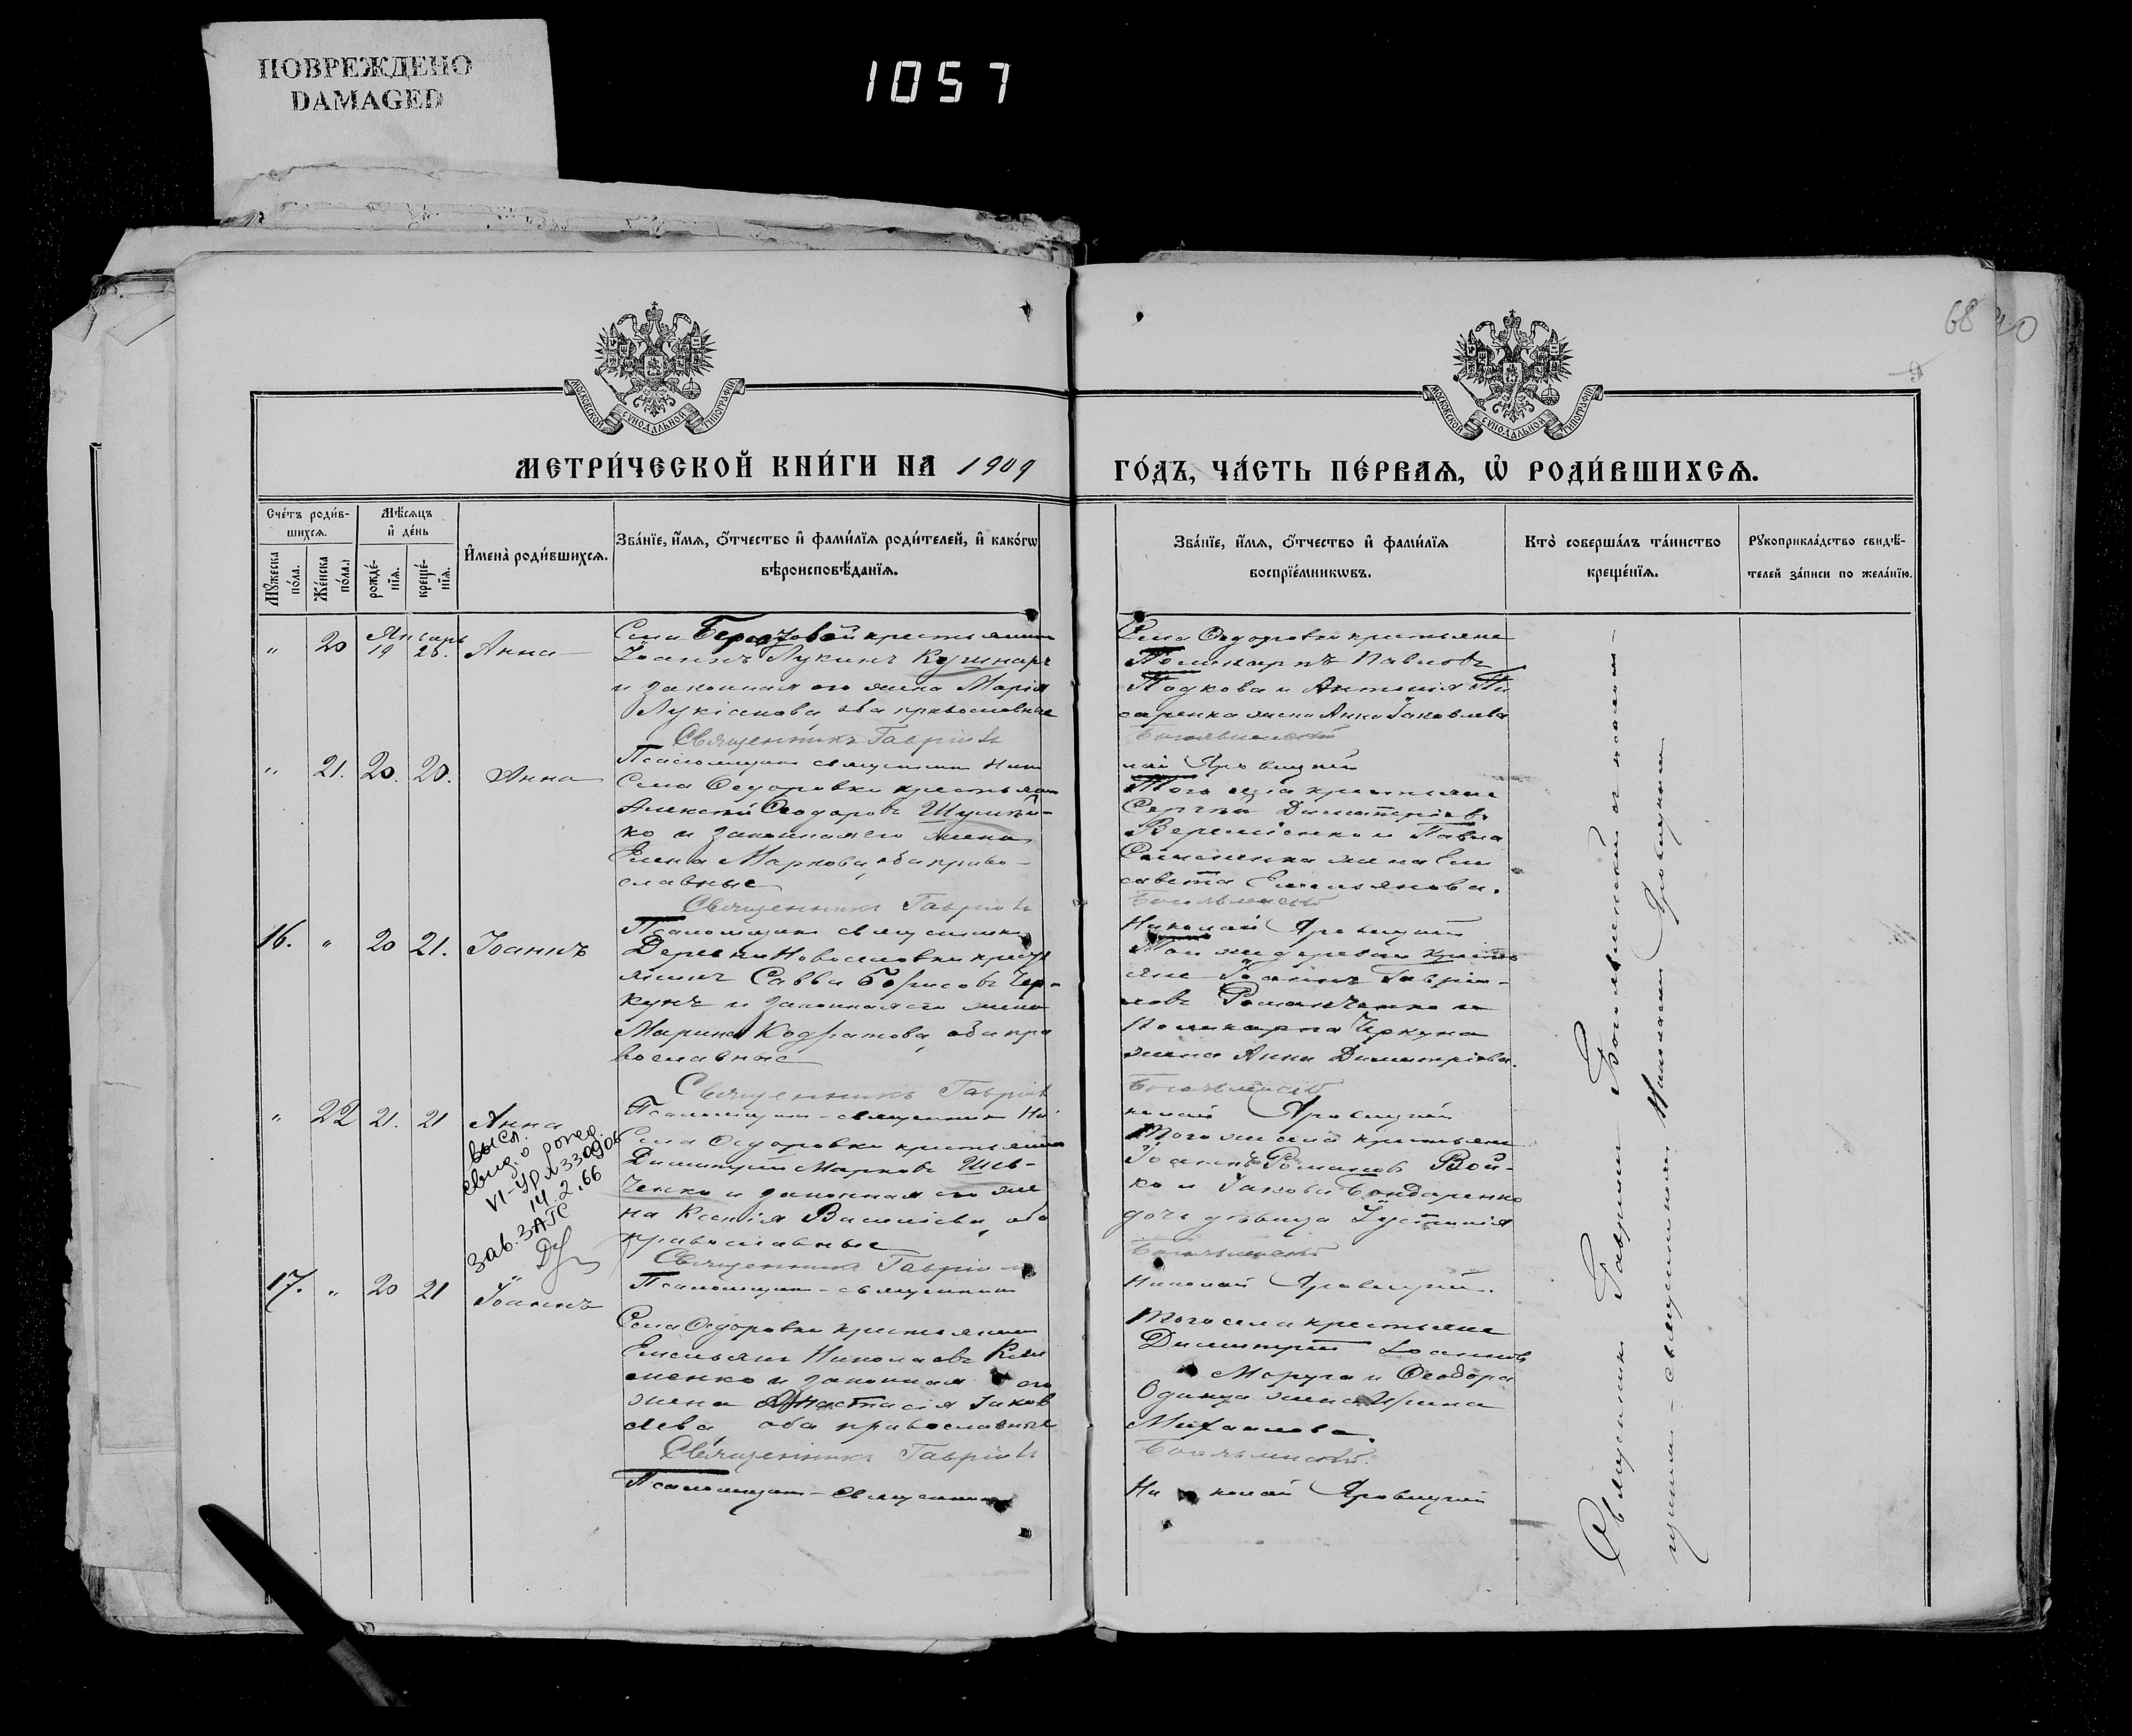 ПОВРЕЖДЕНО
DAMAGED
1057
68
МОСКОВСКОЙ СУНОДАЛЬНОЙ ТИПОГРАФІИ
МОСКОВСКОЙ СУНОДАЛЬНОЙ ТИПОГРАФІИ
МЕТРИ́ЧЕСКОЙ КНИ́ГИ НА 1909
ГО́ДЪ, ЧА́СТЬ ПЕ́РВАѦ, Ѽ РОДИ́ВШИХСѦ.
Сче́тъ роди́в-
шихсѧ.
Мѣ́сѧцъ
и҆ де́нь
Мꙋ́жеска
по́ла.
Же́нска
по́ла.
рожде́-
нїѧ.
креще́-
нїѧ.
И҆мена̀ роди́вшихсѧ.
Зва́нїе, и҆́мѧ, ѻ҆́тчество и҆ фами́лїѧ роди́телей, и҆ како́гѡ
вѣроисповѣ́данїѧ.
Зва́нїе, и҆́мѧ, ѻ҆́тчество и҆ фами́лїѧ
воспрїе́мникѡвъ.
Кто̀ соверша́лъ та́инство
креще́нїѧ.
Рꙋкоприкла́дство свидѣ́-
телей за́писи по жела́нїю.
„ 20 Январь
19 26. Анна
Села Березовой крестьянинъ
Іоаннъ Лукинъ Кушнаръ
и законная его жена Марія
Лукіанова оба православные
Священникъ Гавріилъ
Псаломщикъ священникъ Ник
Села Ѳедоровки крестьяне
Поликарпъ Павловъ
Подкова и Антонія Пи
саренка жена Анна Іаковлева
Богоявленскій
лай Яровицкій
„ 21. 20. 20. Анна
Села Ѳедоровки крестьянин
Алексѣй Ѳеодоровъ Шулей-
ко и законная его жена
Елена Маркова, оба право-
славные
Священникъ Гавріилъ
Псаломщикъ священникъ
Того села крестьяне
Сергѣй Димитріевъ
Веремiенко и Павла
жена Ели
савета Емельянова.
Богоявленскій
Николай Яровицкій
16. „ 20 21. Іоаннъ
Деревни Новоселовки крест
янинъ Савва Борисовъ Чер-
кунъ и законная его жена
Марина Кодратова, оба пра
вославные
Священникъ Гавріилъ
Псаломщикъ - священникъ Ни
Той же деревни крестья
яне Іоаннъ Гаврiи-
ловъ Романченко и
Поликарпа Черкуна
жена Анна Димитріева.
Богоявленскій
колай Яровицкій
„ 22 21. 21 Анна
высл.
свид. о рожд.
VI-УР № 330906
14.2.66
Зав. ЗАГС
Села Ѳедоровки крестьянинъ
Димитрій Марковъ Шев-
ченко и законная его же
на Ксенія Василіева, оба
православные
Священникъ Гавріилъ
Псаломщикъ - священникъ
Того же села крестьяне
Іоаннъ Романовъ Вой-
ко и Іакова Бондаренко
дочь дѣвица Іустинія
Богоявленскій
Николай Яровицкій.
17. „ 20 21 Іоаннъ
Села Ѳедоровки крестьянинъ
Емельянъ Николаевъ Кли
менко и законная его
жена Анастасія Іаков
лева оба православные
Священникъ Гавріилъ
Псаломщикъ - священникъ
Того села крестьяне
Димитрій Іоанновъ
Маруга и Ѳеодора
Одинца жена Ирина
Михаилова.
Богоявленскій.
Николай Яровицкій
Священникъ Гавріилъ Богоявленскій и псалом-
щикъ - священникъ Николай Яровицкій